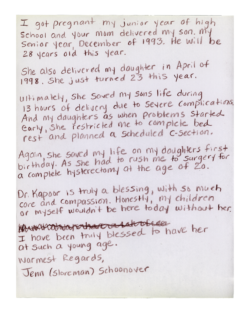 I got pregnant my Junior year of high
School and your mom delivered my son. my
Senior year, December of 1993. He will be
28 years old this year.
She also delivered my daughter in April of
1998. She Just turned 23 this year.
Ultimately, She Saved my Sons life during
13 hours of delivery due to Severe Complications
And my daughters as when problems Started
Early, She restricted me to complete bed
rest and planned a Scheduled C-Section.
Again, She Saved my life on my daughters first
birthday. As She had to rush me to Surgery for
a complete hysterectomy at the age of 20.
Dr. Kapoor is truly a blessing, with so much
care and compassion. Honestly, my children
or myself wouldn't be here today without her.
I have been truly blessed to have her
at Such a young age.
Warmest Regards,
Jenn Schoonover